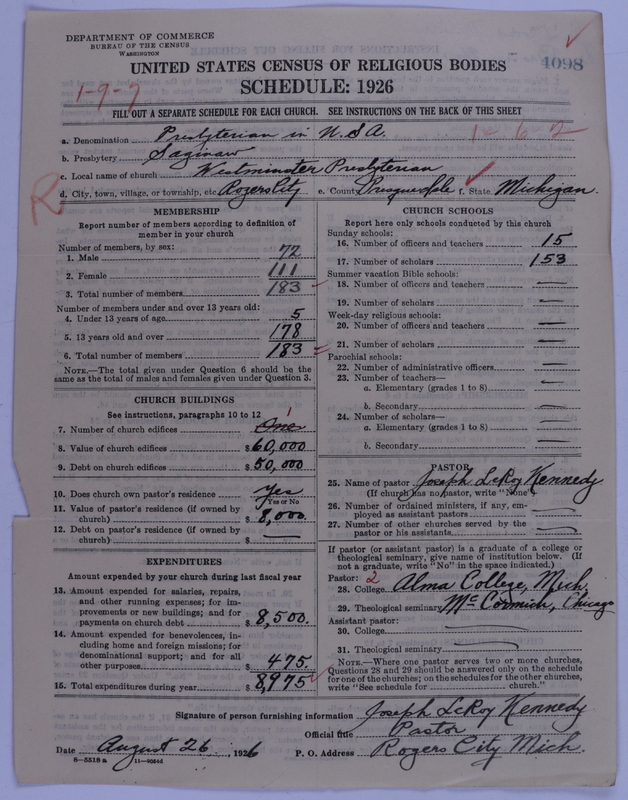 DEPARTMENT OF COMMERCE
BUREAU OF THE CENSUS
WASHINGTON
4098
UNITED STATES CENSUS OF RELIGIOUS BODIES
SCHEDULE: 1926
1-9-7
FILL OUT A SEPARATE SCHEDULE FOR EACH CHURCH. SEE INSTRUCTIONS ON THE BACK OF THIS SHEET
a. Denomination Presbyterian in U.S.A. 1-62
b. Presbytery Saginaw
c. Local name of church Westminster Presbyterian
d. City, town, village, or township, etc Rogers City e. County Presque Isle f. State Michigan.
R
MEMBERSHIP
Report number of members according to definition of
member in your church
Number of members, by sex:
1. Male 72
2. Female 111
3. Total number of members 183
Number of members under and over 13 years old:
4. Under 13 years of age 5
5. 13 years old and over 178
6. Total number of members 183
NOTE.—The total given under Question 6 should be
same as the total of males and females given under Question 3.
CHURCH BUILDINGS
See instructions, paragraphs 10 to 12
1
7. Number of church edifices One
8. Value of church edifices $60,000
9. Debt on church edifices $50,000
10. Does church own pastor's residence Yes
Yes or No
11. Value of pastor's residence (if owned by
church) $8,000
12. Debt on pastor's residence (if owned by
church) $ —
EXPENDITURES
Amount expended by your church during last fiscal year
13. Amount expended for salaries, repairs,
and other running expenses; for im-
provements or new buildings; and for
payments on church debt $8,500.
14. Amount expended for benevolences, in-
cluding home and foreign missions; for
denominational support; and for all
other purposes $475
15. Total expenditures during year $8,975
CHURCH SCHOOLS
Report here only schools conducted by this church
Sunday schools:
16. Number of officers and teachers 15
17. Number of scholars 153
Summer vacation Bible schools:
18. Number of officers and teachers —
19. Number of scholars —
Week-day religious schools:
20. Number of officers and teachers —
21. Number of scholars —
Parochial schools:
22. Number of administrative officers —
23. Number of teachers—
a. Elementary (grades 1 to 8) —
b. Secondary —
24. Number of scholars—
a. Elementary (grades 1 to 8) —
b. Secondary —
PASTOR
25. Name of pastor Joseph LeRoy Kennedy
(If church has no pastor, write "None")
26. Number of ordained ministers, if any, em-
ployed as assistant pastors —
27. Number of other churches served by the
pastor or his assistants —
If pastor (or assistant pastor) is a graduate of a college or
theological seminary, give name of institution below. (If
not a graduate, write "No" in the space indicated.)
Pastor: 2
28. College Alma College, Mich.
29. Theological seminary McCormick, Chicago
Assistant pastor:
30. College —
31. Theological seminary —
NOTE.—Where one pastor serves two or more churches,
Questions 28 and 29 should be answered only on the schedule
for one of the churches; on the schedules for the other churches,
write "See schedule for church."
Signature of person furnishing information Joseph LeRoy Kennedy
Official title Pastor
Date August 26, 1926 P. O. Address Rogers City Mich
8—5518 a